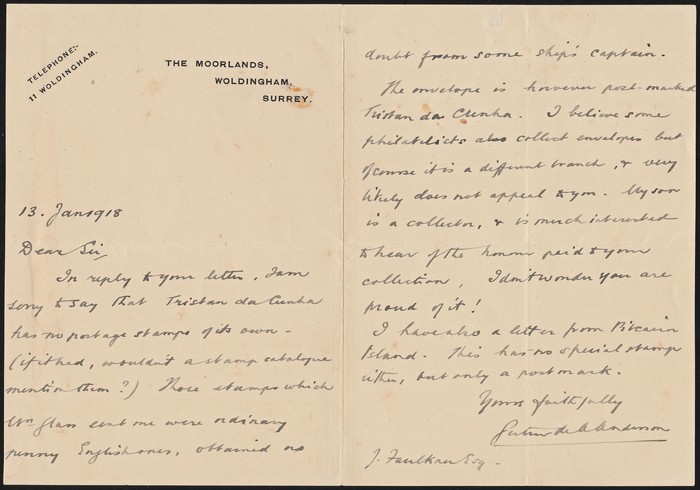 TELEPHONE:-
11 WOLDINGHAM.
THE MOORLANDS,
WOLDINGHAM,
SURREY.
13. Jan 1918
Dear Sir,
In reply to your letter, I am
sorry to say that Tristan da Cunha
has no postage stamps of its own -
(if it had, wouldn't a stamp catalogue
mention them?) Those stamps which
Wm Glass sent me were ordinary
penny English ones, obtained no
doubt from some ship's captain.
The envelope is however post-marked
Tristan da Cunha. I believe some
philatelists also collect envelopes but
of course it is a different branch, & very
likely does not appeal to you. My son
is a collector, & is much interested
to hear of the honour paid to your
collection, I don't wonder you are
proud of it!
I have also a letter from Pitcairn
Island. This has no special stamp
either, but only a postmark.
Yours faithfully
Anderson
J. Faulkner Esq -